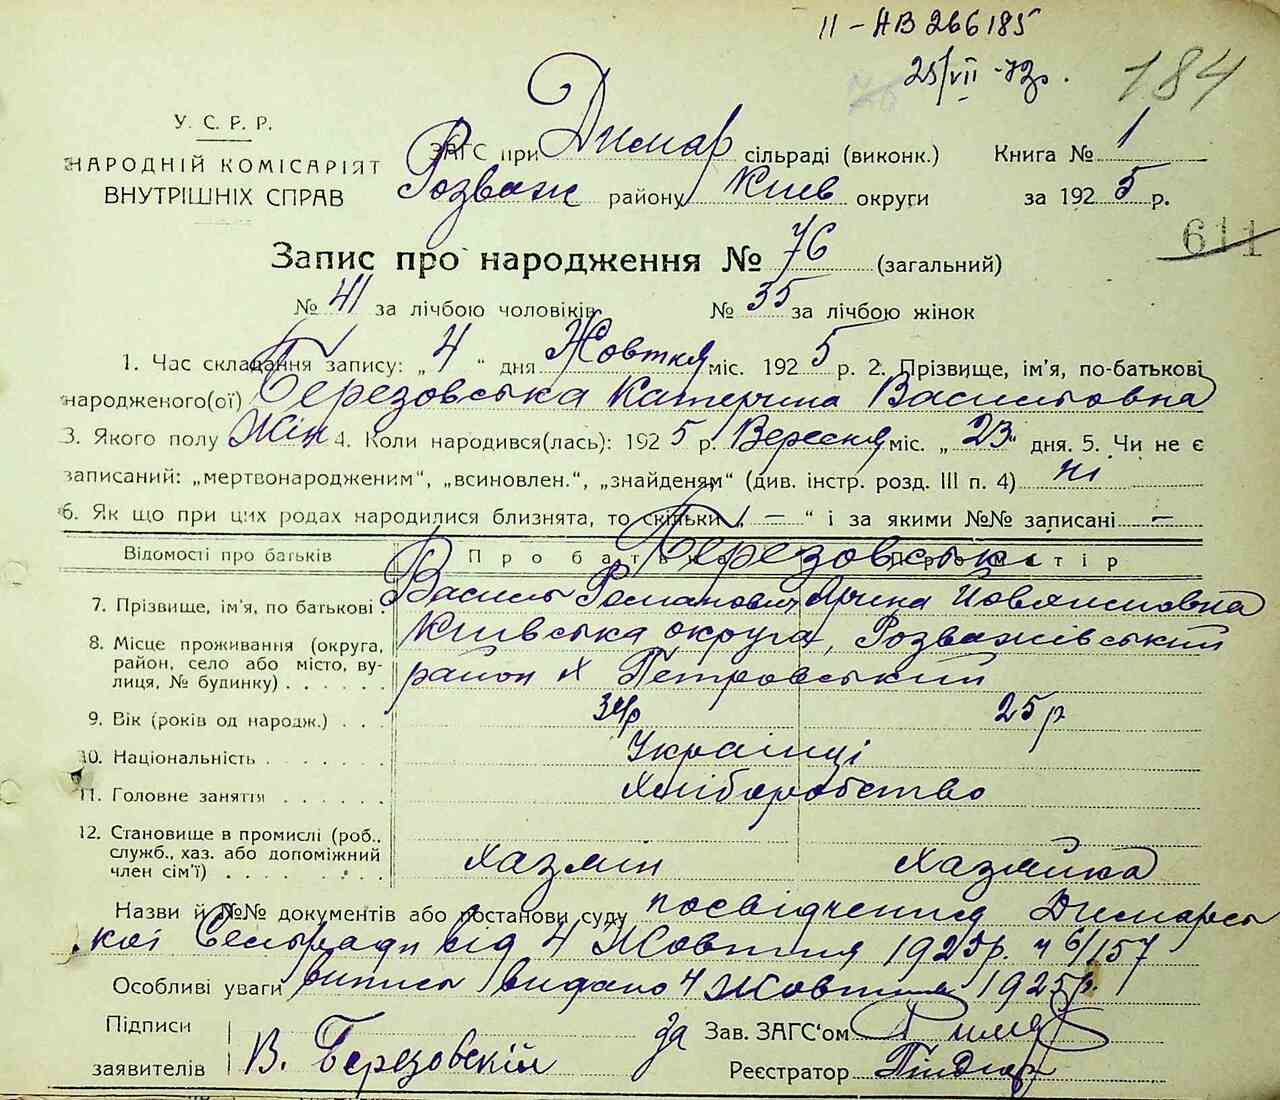 II - НВ 266185
25/VII - 72р.
184
У. С. Р. Р.
НАРОДНІЙ КОМІСАРІЯТ
ВНУТРІШНІХ СПРАВ
ЗАГС при Димар сільраді (виконк.) Книга № 1
Розваж району Київ округи за 1925 р.
611
Запис про народження № 76 (загальний)
№ 41 за лічбою чоловіків № 35 за лічбою жінок
1. Час складання запису: „ 4 " дня Жовтня міс. 1925 р. 2. Прізвище, ім'я, по-батькові
народженого(ої) Березовська Катерина Васильовна
3. Якого полу Жін 4. Коли народився(лась): 1925 р. Вересня міс. „ 23 " дня. 5. Чи не є
записаний: „мертвонародженим", „всиновлен.", „знайденям" (див. інстр. розд. III п. 4) ні
6. Як що при цих родах народилися близнята, то скільки „ — " і за якими №№ записані —
Відомості про батьків Про батька Про матір
Березовські
7. Прізвище, ім'я, по батькові Василь Романович Ярина Йовхимовна
8. Місце проживання (округа, Київська округа, Розважівський
район, село або місто, ву- район х Петровський
лиця, № будинку)
9. Вік (років од народж.) 34р 25р
10. Національність Українці
11. Головне заняття хліборобство
12. Становище в промислі (роб.,
служб., хаз. або допоміжний хазяїн хазяйка
член сім'ї)
Назви й №№ документів або постанови суду посвідчення Димарсь
кої Сельради від 4 Жовтня 1925р. ч 6/157
Особливі уваги випись видано 4 Жовтня 1925р.
Підписи за Зав. ЗАГС'ом
заявителів В. Березовскій Реєстратор